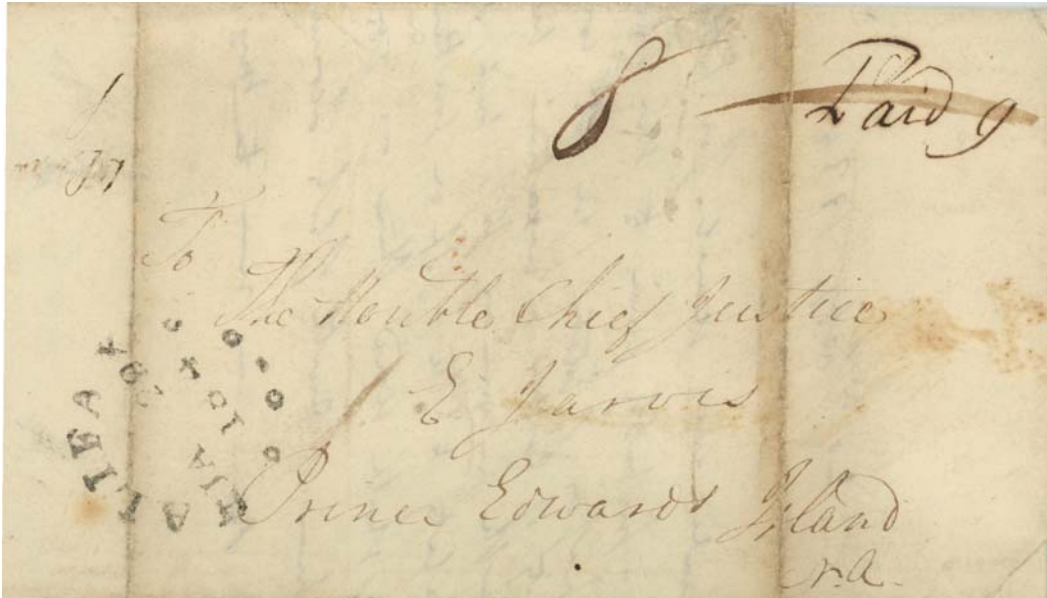 8 Paid 9
To
The Honble Chief Justice
E Jarvis
Prince Edwards Island
N.A.
HALIFAX